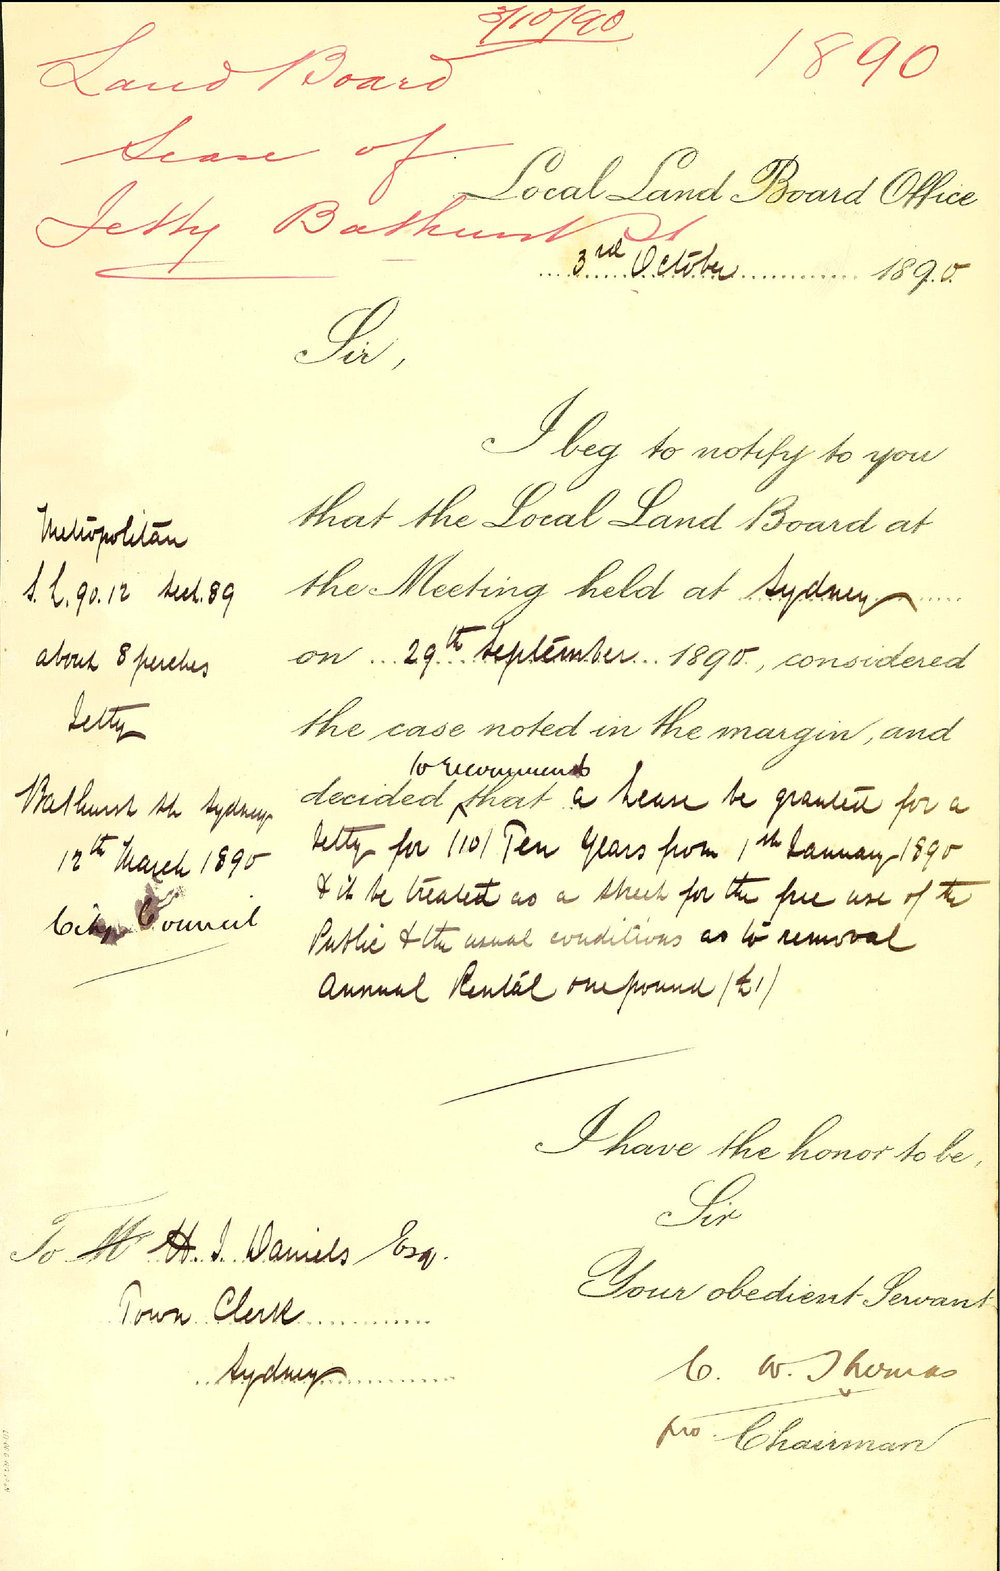 3/10/90
1890
Land Board
Lease of
Jetty Bathurst St
Local Land Board Office
3rd October 1890.
Sir,
I beg to notify to you
that the Local Land Board at
the Meeting held at Sydney
on 29th September 1890, considered
the case noted in the margin, and
to recommend
decided that a Lease be granted for a
Jetty for (10) Ten Years from 1st January 1890
& it be treated as a street for the free use of the
Public & the usual conditions as to removal
Annual Rental one pound (£1)
Metropolitan
S.L. 90.12 Sect. 89
about 8 perches
Jetty
Bathurst St Sydney
12th March 1890
City Council
I have the honor to be,
Sir
Your obedient Servant
C. W. Thomas
pro Chairman
To Mr H. J. Daniels Esq.
Town Clerk
Sydney